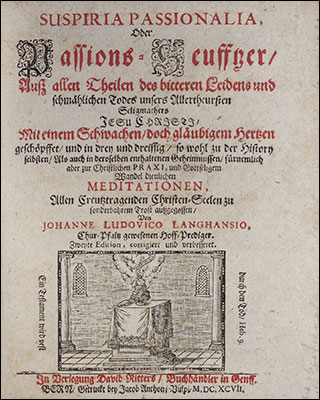 SUSPIRIA PASSIONALIA,
Oder
Passions-Seuffzer/
Auß allen Theilen des bitteren Leidens und
schmählichen Todes unsers Allertheursten
Seligmachers
JESU CHRISTI/
Mit einem Schwachen/doch gläubigem Hertzen
geschöpffet/ und in drey und dreissig/ so wohl zu der History
selbsten/ Als auch in deroselben enthaltenen Geheimnussen/ fürnemlich
aber zur Christlichen PRAXI, und Gottseligem
Wandel dienlichen
MEDITATIONEN,
Allen Creutztragenden Christen-Seelen zu
sonderbahrem Trost außgegossen/
Von
JOHANNE LUDOVICO LANGHANSIO,
Chur-Pfaltz gewesenen Hoff-Prediger.
Zweyte Edition, corrigiert und verbessert.
Ein Testament wird vest
durch den Tod/ Heb. 9.
In Verlegung David Ritters/ Buchhändler in Genff.
BERN/ Getruckt bey Jacob Anthoni Vulpi, M.DC.XCVII.